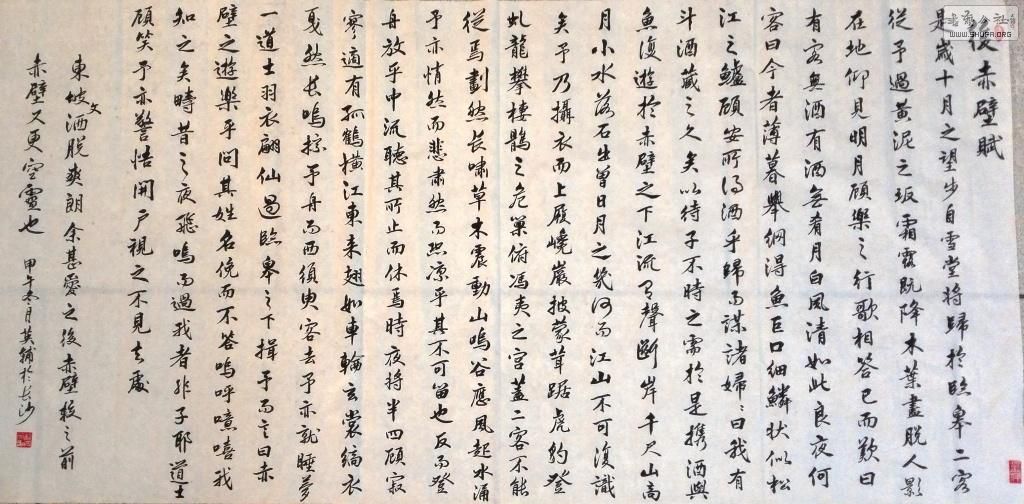 後赤壁賦
是歲十月之望步自雪堂將歸於臨皋二客
從予過黃泥之坂霜露既降木葉盡脫人影
在地仰見明月顧樂之行歌相答已而歎曰
有客無酒有酒無肴月白風清如此良夜何
客曰今者薄暮舉網得魚巨口細鱗狀似松
江之鱸顧安所得酒乎歸而謀諸婦婦曰我有
斗酒藏之久矣以待子不時之需於是攜酒與
魚復遊於赤壁之下江流有聲斷岸千尺山高
月小水落石出曾日月之幾何而江山不可復識
矣予乃攝衣而上履巉巖披蒙茸踞虎豹登
虬龍攀棲鶻之危巢俯馮夷之宮蓋二客不能
從焉劃然長嘯草木震動山鳴谷應風起水涌
予亦悄然而悲肅然而恐凜乎其不可留也反而登
舟放乎中流聽其所止而休焉時夜將半四顧寂
寥適有孤鶴橫江東來翅如車輪玄裳縞衣
戛然長鳴掠予舟而西須臾客去予亦就睡夢
一道士羽衣翩仙過臨皋之下揖予而言曰赤
壁之遊樂乎問其姓名俛而不答嗚呼噫嘻我
知之矣疇昔之夜飛鳴而過我者非子耶道士
顧笑予亦驚悟開戶視之不見其處
東坡文洒脫爽朗余甚愛之後赤壁較之前
赤壁又更空靈也 甲午冬月英輔於長沙
WWW.SHUFA.ORG